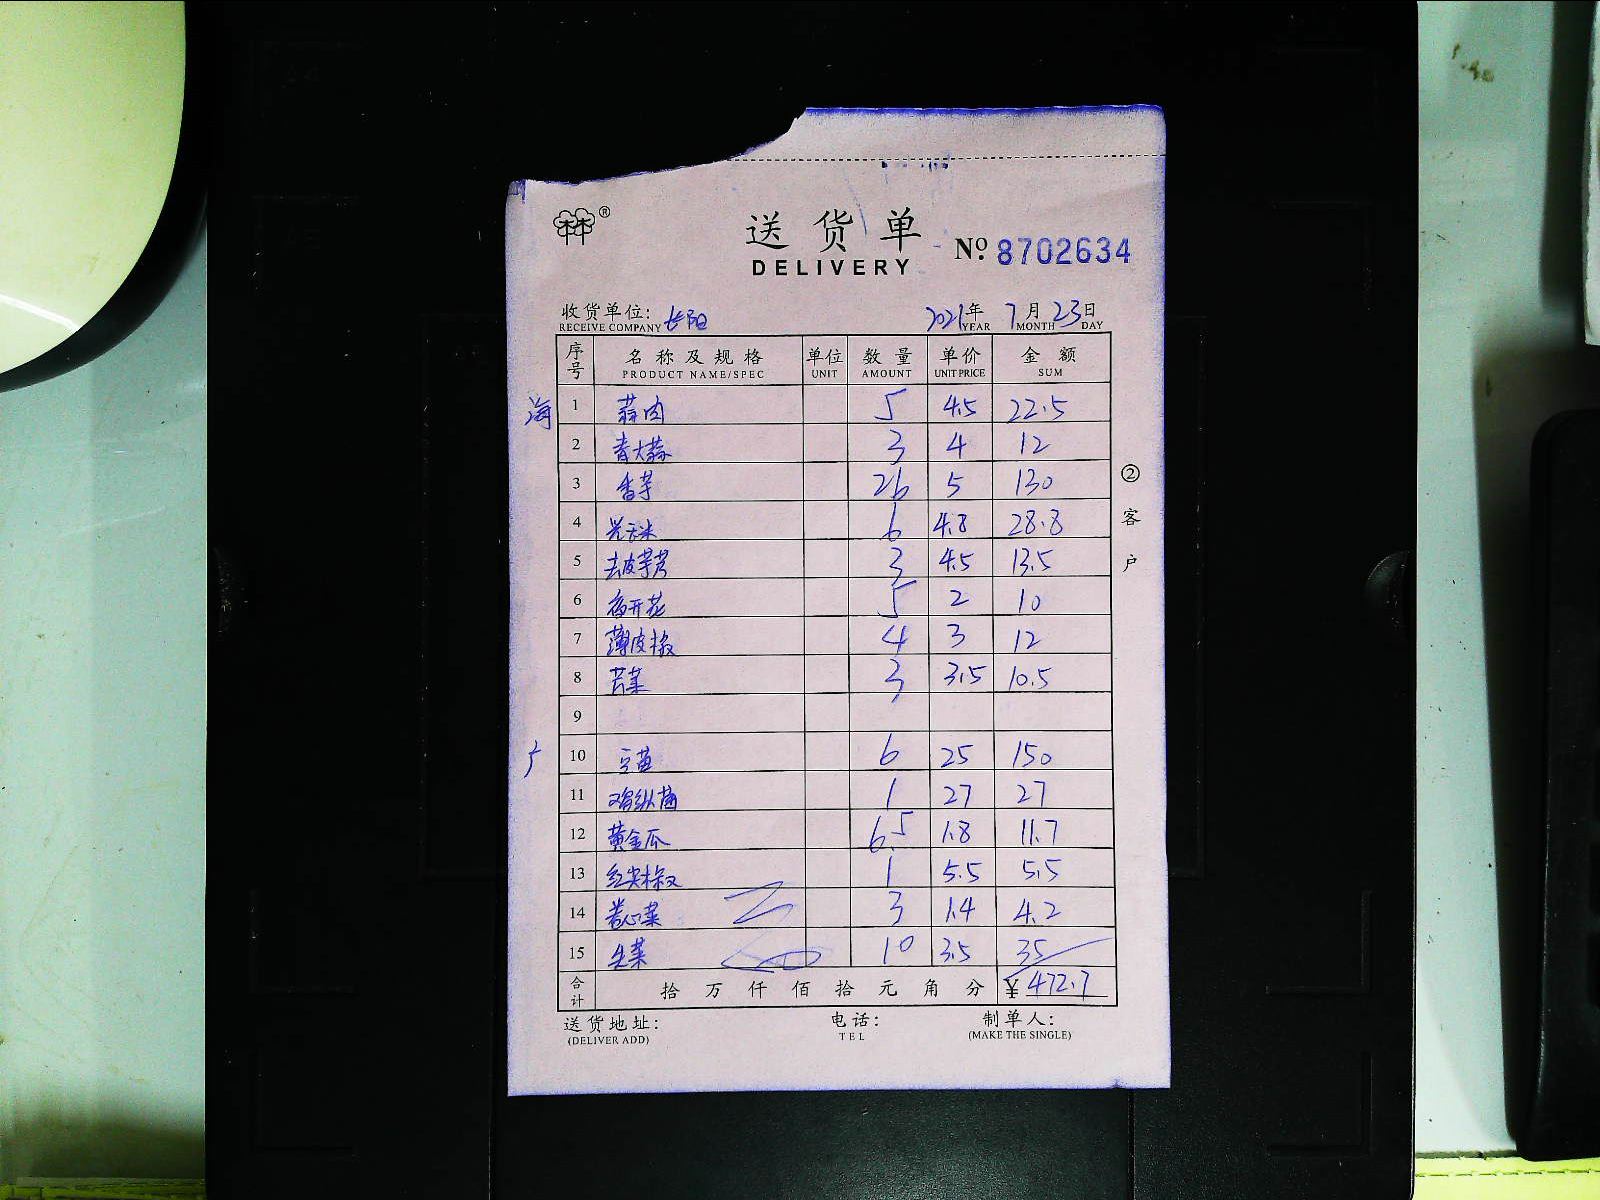 送货单
DELIVERY
№ 8702634
收货单位: 长阳 2021年 7月 23日
RECEIVE COMPANY YEAR MONTH DAY
序号 名称及规格 单位 数量 单价 金额
PRODUCT NAME/SPEC UNIT AMOUNT UNIT PRICE SUM
海 1 蒜肉 5 4.5 22.5
2 青大蒜 3 4 12
3 香芋 26 5 130
4 6 4.8 28.8
5 去皮芋艿 3 4.5 13.5
6 夜开花 5 2 10
7 薄皮椒 4 3 12
8 苦菜 3 3.5 10.5
9
广 10 豆苗 6 25 150
11 鸡纵菌 1 27 27
12 黄金瓜 6.5 1.8 11.7
13 红尖椒 1 5.5 5.5
14 卷心菜 3 1.4 4.2
15 生菜 10 3.5 35
合计 拾 万 仟 佰 拾 元 角 分 ¥ 472.7
送货地址: 电话: 制单人:
(DELIVER ADD) TEL (MAKE THE SINGLE)
②客户